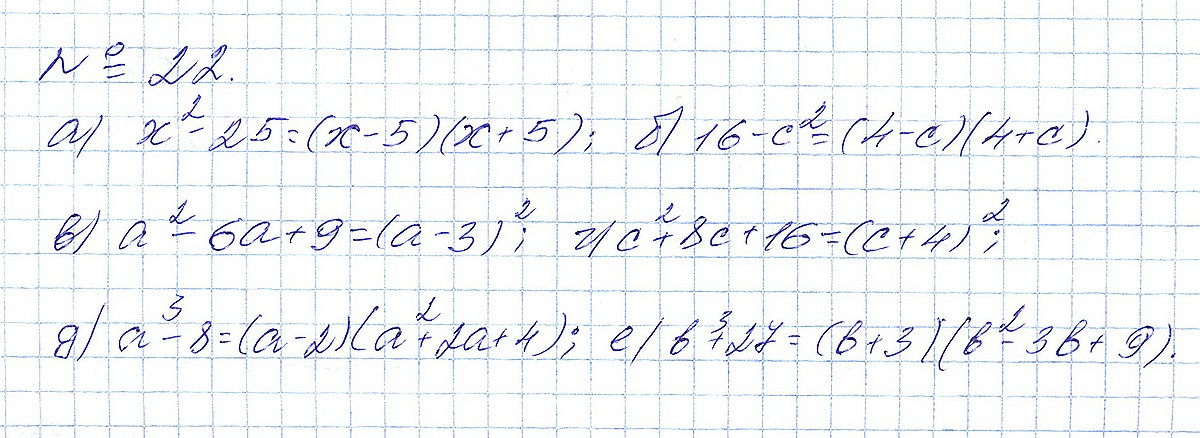 № 22.
а) x² - 25 = (x - 5)(x + 5); б) 16 - c² = (4 - c)(4 + c).
в) a² - 6a + 9 = (a - 3)²; г) c² + 8c + 16 = (c + 4)²;
д) a³ - 8 = (a - 2)(a² + 2a + 4); е) b³ + 27 = (b + 3)(b² - 3b + 9).